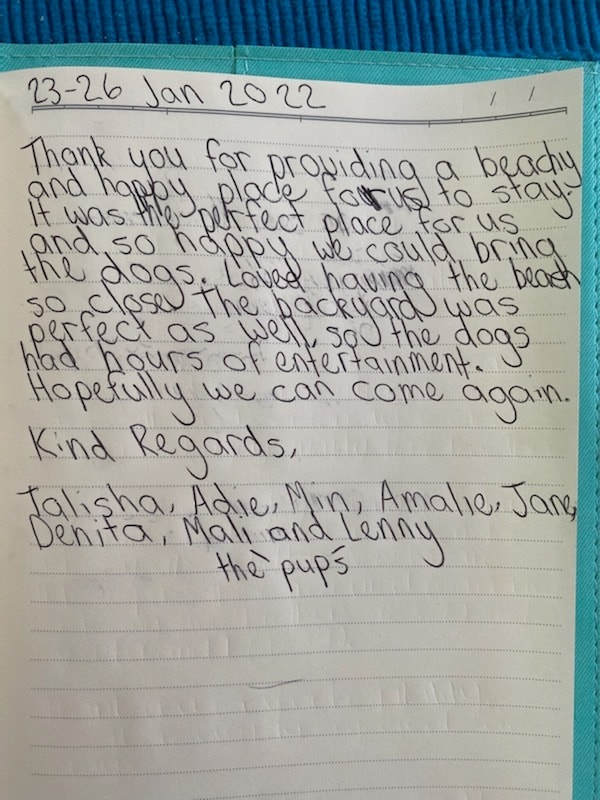 23-26 Jan 2022 / /
Thank you for providing a beachy
and happy place for us to stay.
It was the perfect place for us
and so happy we could bring
the dogs. Loved having the beach
so close. The backyard was
perfect as well, so the dogs
had hours of entertainment.
Hopefully we can come again.
Kind Regards,
Talisha, Adie, Min, Amalie, Jane,
Denita, Mali and Lenny
the pups